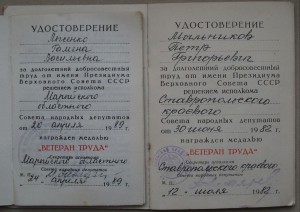 УДОСТОВЕРЕНИЕ
Галина
за долголетний добросовестный
труд от имени Президиума
Верховного Совета СССР
решением исполкома
Марийского
областного
Совета народных депутатов
от 20 апреля 1989 г.
награжден медалью
"ВЕТЕРАН ТРУДА"
Марийского областного
апреля 1989 г.
УДОСТОВЕРЕНИЕ
Мыльников
Петр
Григорьевич
за долголетний добросовестный
труд от имени Президиума
Верховного Совета СССР
решением исполкома
Ставропольского
краевого
Совета народных депутатов
от 30 июня 1982 г.
награжден медалью
"ВЕТЕРАН ТРУДА"
Ставропольского краевого
12 июля 1982 г.